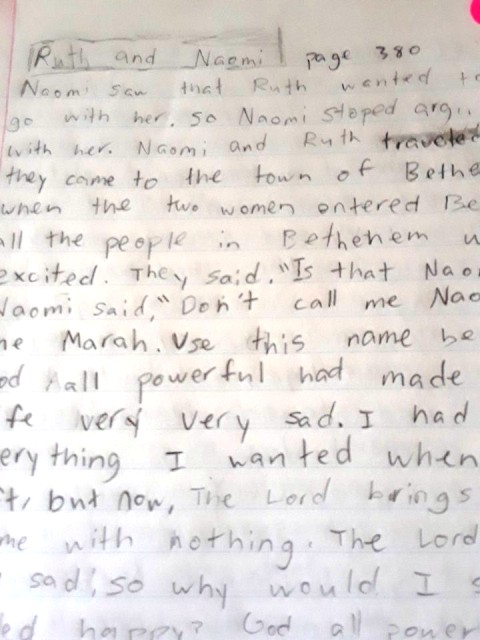 Ruth and Naomi page 380
Naomi saw that Ruth wanted to
go with her. so Naomi stoped arg
with her. Naomi and Ruth traveled
they came to the town of Bethe
when the two women entered Be
all the people in Bethehem w
excited. They said, "Is that Nao
Naomi said," Don't call me Nao
me Marah. Use this name be
od all powerful had made
fe very very sad. I had
erything I wanted when
ft, but now, The Lord brings
me with nothing. The Lord
sad, so why would I s
ed happy? God all power